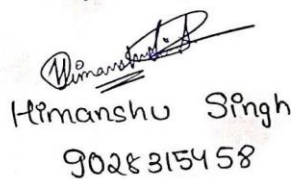 Himanshu Singh
9028315458